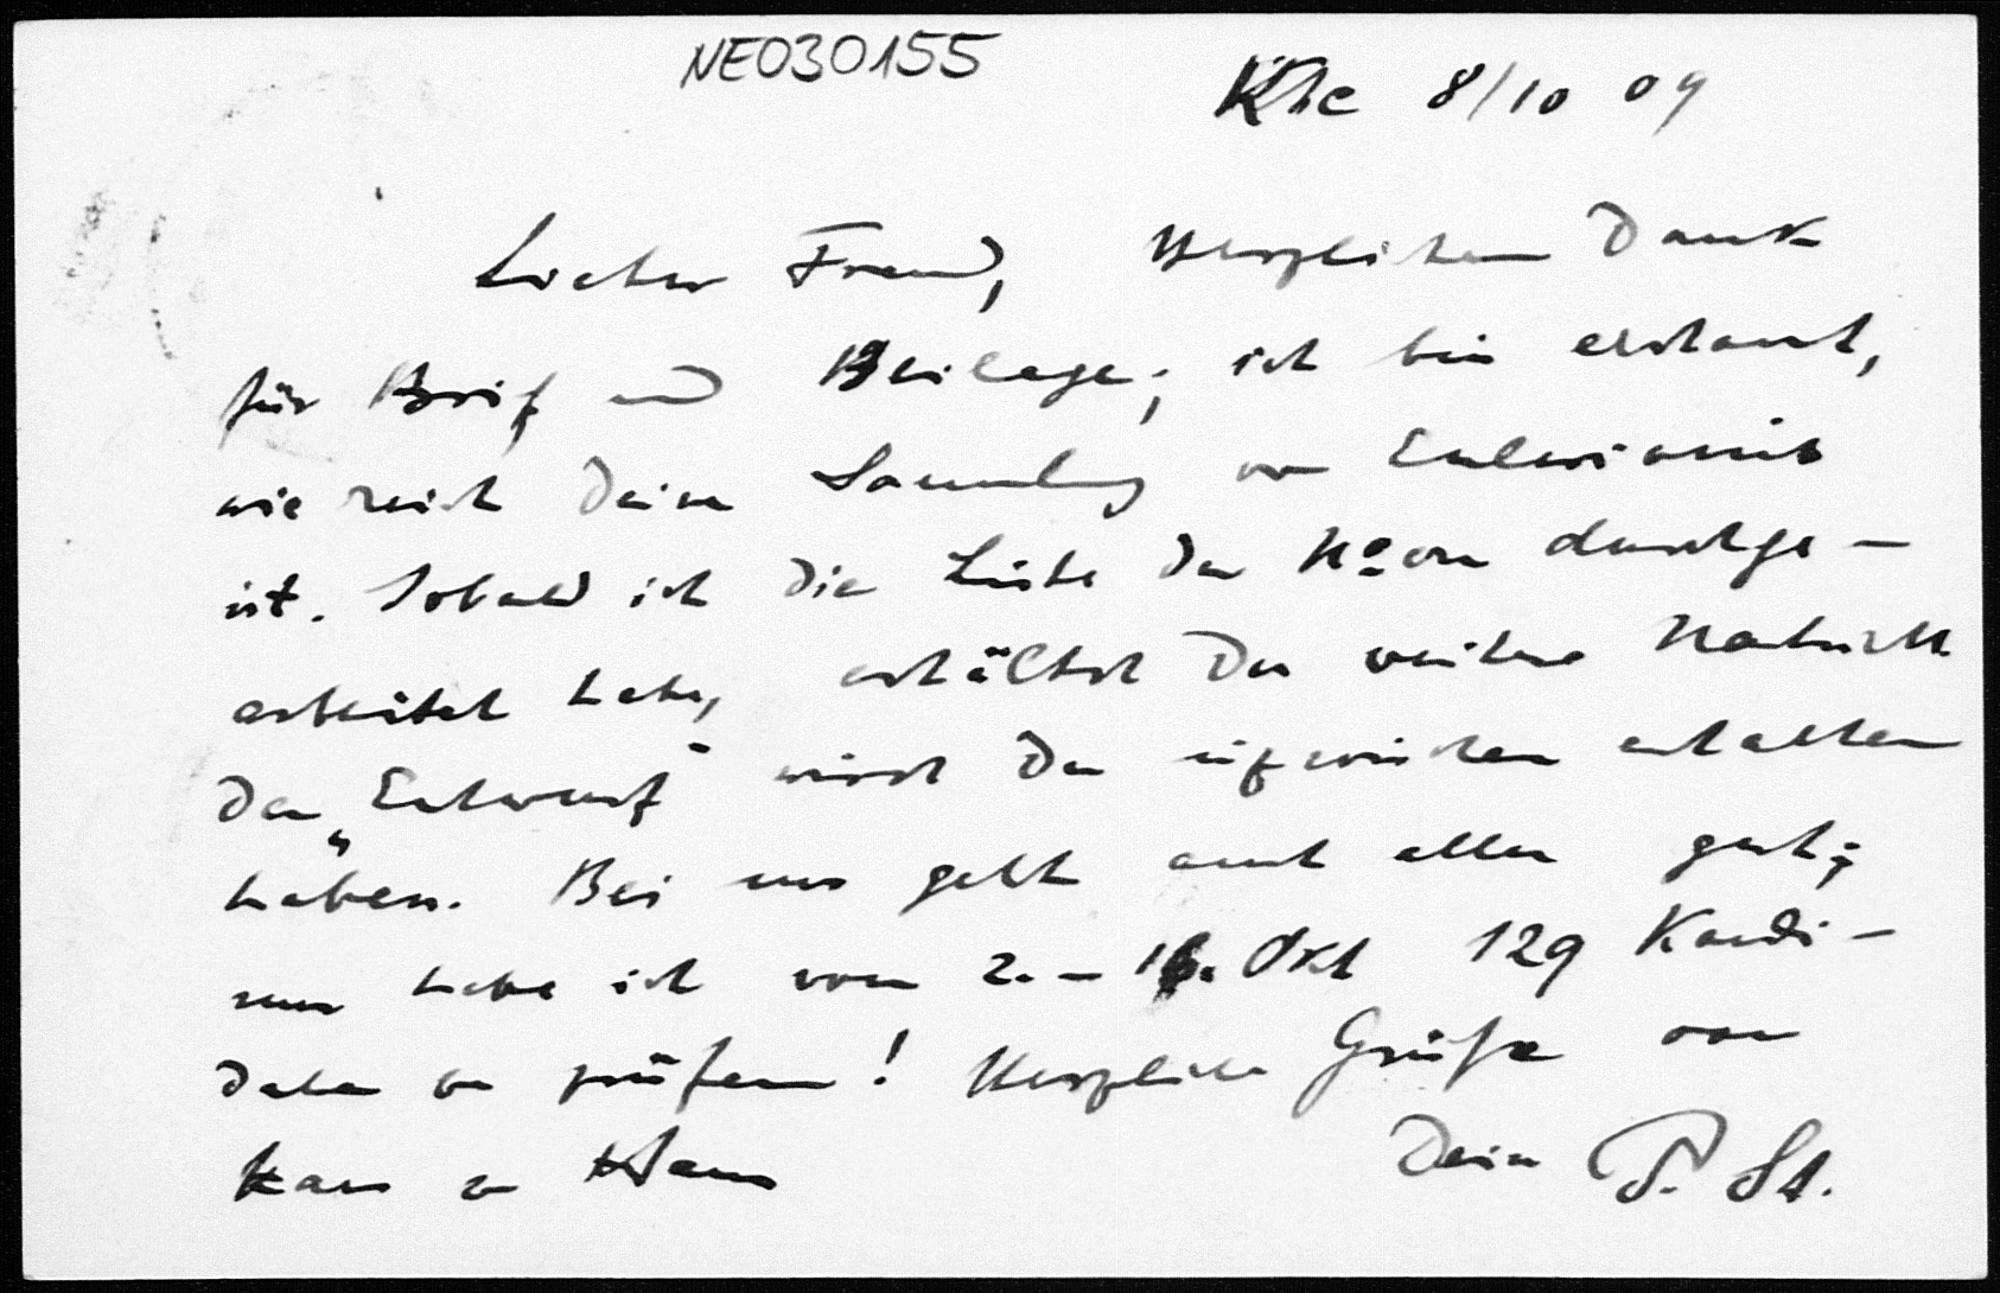 NE030155
Khe 8/10 09
Lieber Freund, Herzlichen Dank
für Brief und Beilage; ich bin erstaunt,
wie reich Deine Sammlung von Euleriania
ist. Sobald ich die Liste der No en durchge-
arbeitet habe, erhältst Du weitere Nachricht
den „Entwurf" wirst Du inzwischen erhalten
haben. Bei uns geht auch alles gut;
nun habe ich vom 2. - 16. Okt 129 Kandi-
daten zu prüfen! Herzliche Grüße von
Haus zu Haus Dein P. St.